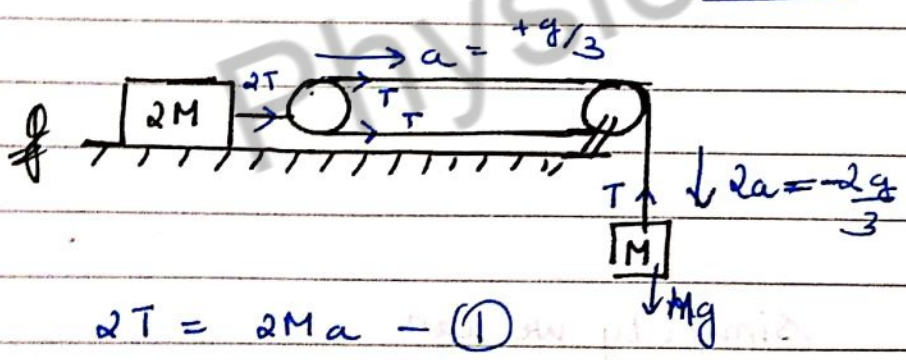 Physic
a = +g/3
2T
T
2M
T
T
2a = -2g/3
M
Mg
2T = 2Ma - ①